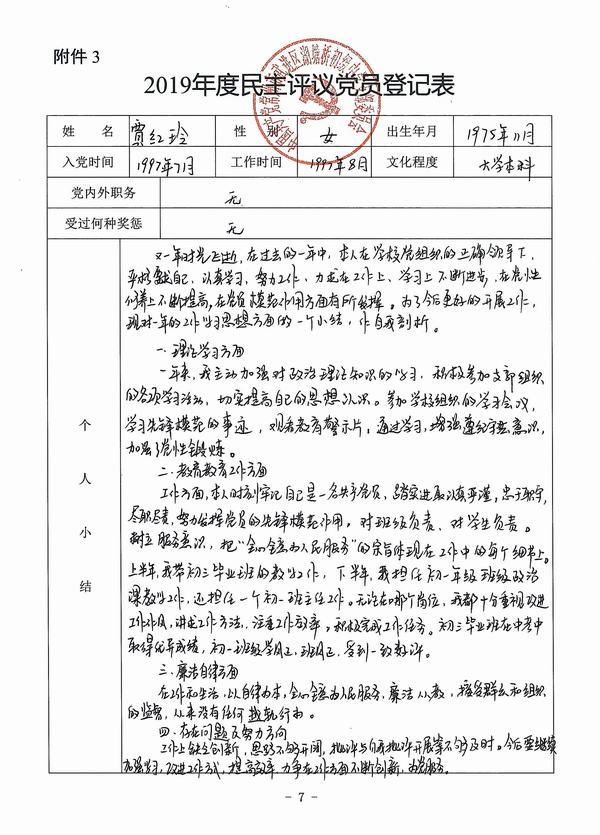 附件 3
2019年度民主评议党员登记表
姓 名 贾红玲 性 别 女 出生年月 1975年11月
入党时间 1997年7月 工作时间 1997年8月 文化程度 大学本科
党内外职务 无
受过何种奖惩 无
个人小结
又一年时光飞逝,在过去的一年中,本人在学校党组织的正确领导下,
严格要求自己,认真学习,努力工作,力求在工作上、学习上不断进步,在党性
修养上不断提高,在党员模范作用方面有所发挥。为了今后更好的开展工作,
现对一年的工作学习思想方面的一个小结,作自我剖析。
一.理论学习方面
一年来,我主动加强对政治理论知识的学习,积极参加支部组织
的各项学习活动,切实提高自己的思想认识。参加学校组织的学习会议,
学习先锋模范的事迹,观看教育警示片,通过学习,增强遵纪守法意识,
加强了党性锻炼。
二.教育教育工作方面
工作方面,本人时刻牢记自己是一名共产党员,踏实进取认真严谨,忠于职守,
尽职尽责,努力发挥党员的先锋模范作用,对班级负责、对学生负责。
树立服务意识,把“全心全意为人民服务”的宗旨体现在工作中的每个细节上。
上半年,我带初三毕业班的教学工作,下半年,我担任初一年级班级政治
课教学工作,还担任一个初一班主任工作。无论在哪个岗位,我都十分重视改进
工作作风,讲求工作方法,注重工作效率,积极完成工作任务。初三毕业班在中考中
取得优异成绩,初一班级学风正,班风正,受到一致好评。
三.廉洁自律方面
在工作和生活,以自律为本,全心全意为人民服务,廉洁从教,接受群众和组织
的监督,从来没有任何越轨行为。
四.存在问题及努力方向
工作上缺乏创新,思路不够开阔,批评与自我批评开展等不够及时。今后要继续
加强学习,改进工作方式,提高效率,力争在工作方面不断创新,
- 7 -